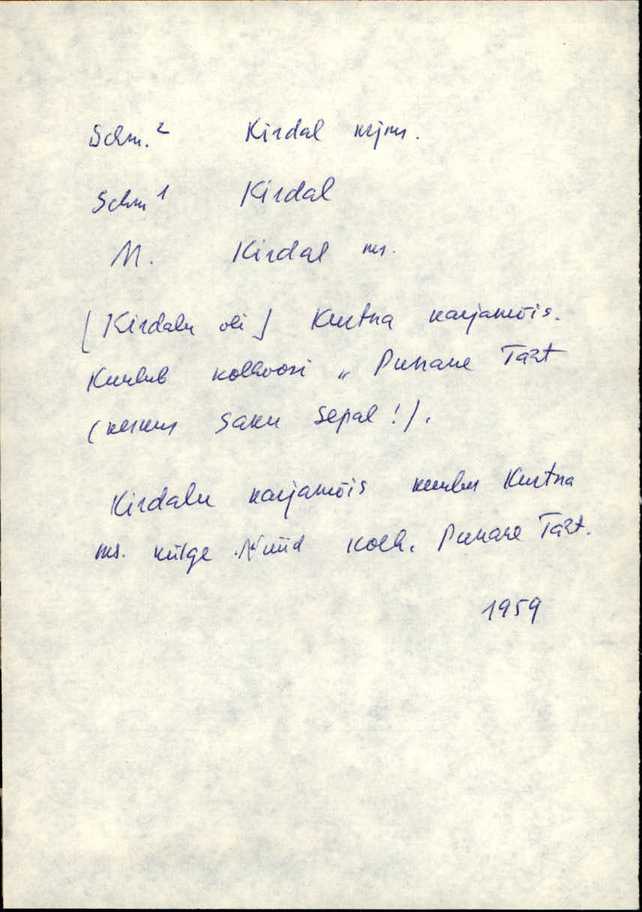 Schm.² Kirdal krjms.
Schm¹ Kirdal
M. Kirdal ms.
[Kirdalu oli] Kurtna karjamõis.
Kuulub kolhoosi „Punane Täht
(keskus Saku Sepal!).
Kirdalu karjamõis kuulus Kurtna
ms. külge. Nüüd kolh. Punane Täht.
1959